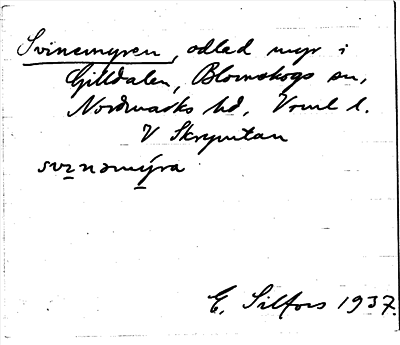 Svinemyren, odlad myr i
Gilldalen, Blomskogs sn,
Nordmarks hd, Vrml l.
V Skrymtan
svinəmýra
E. Silfors 1937.